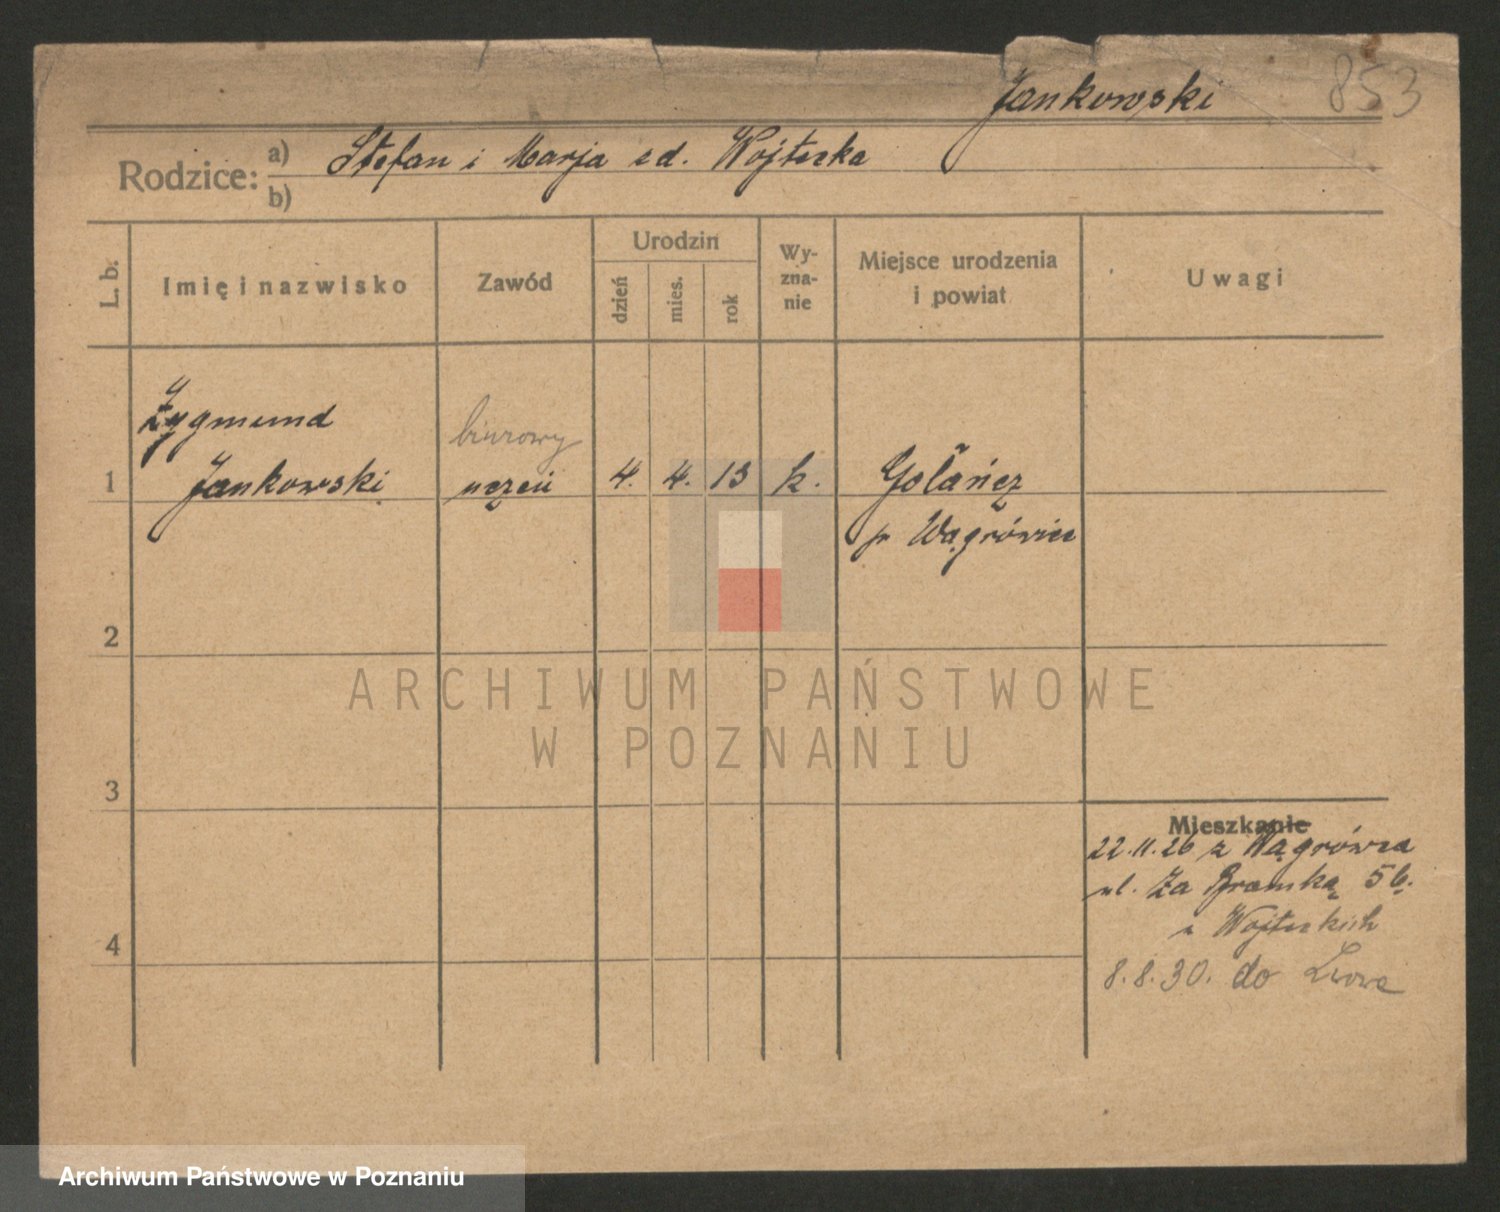 Jankowski 853
Rodzice: a) Stefan i Marja zd. Wojtecka
b)
L. b. Imię i nazwisko Zawód Urodzin dzień mies. rok Wyznanie Miejsce urodzenia i powiat Uwagi
Zygmund biurowy
1 Jankowski uczeń 4. 4. 13 k. Gołańcz
p Wągrówiec
2
ARCHIWUM PAŃSTWOWE
W POZNANIU
3
Mieszkanie
22.11.26 z Wągrówca
ul. Za Bramką 5b.
u Wojteckich
4
8.8.30. do Lwowa
Archiwum Państwowe w Poznaniu